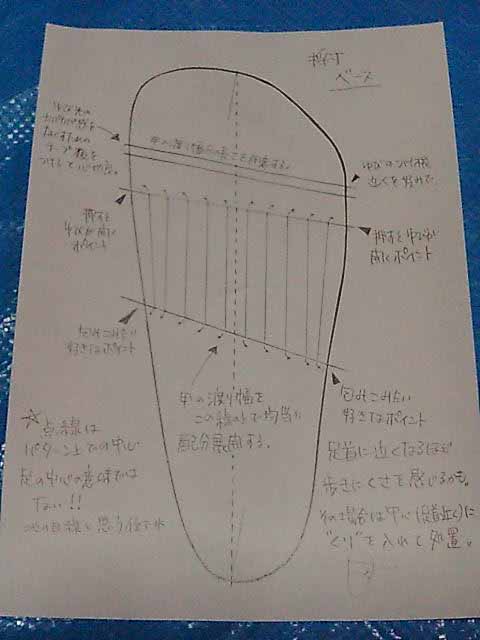 ポイント
ベース
ゆび先の
なくすための
テープ幅を
つけると心地良。
甲の渡り幅の長さを 
押すと
ゆびが開く
ポイント
押すとゆびが
開くポイント
包みこみたい
好きなポイント
甲の渡り幅を
この線の下で均等に
配分展開する。
包みこみたい
好きなポイント
☆点線は
パターン上での中心
足の中心の意味では
ない!!
足首に近くなるほど
歩きにくさを感じるかも。
その場合は中心(足首近く)に
"くり"を入れて処置。